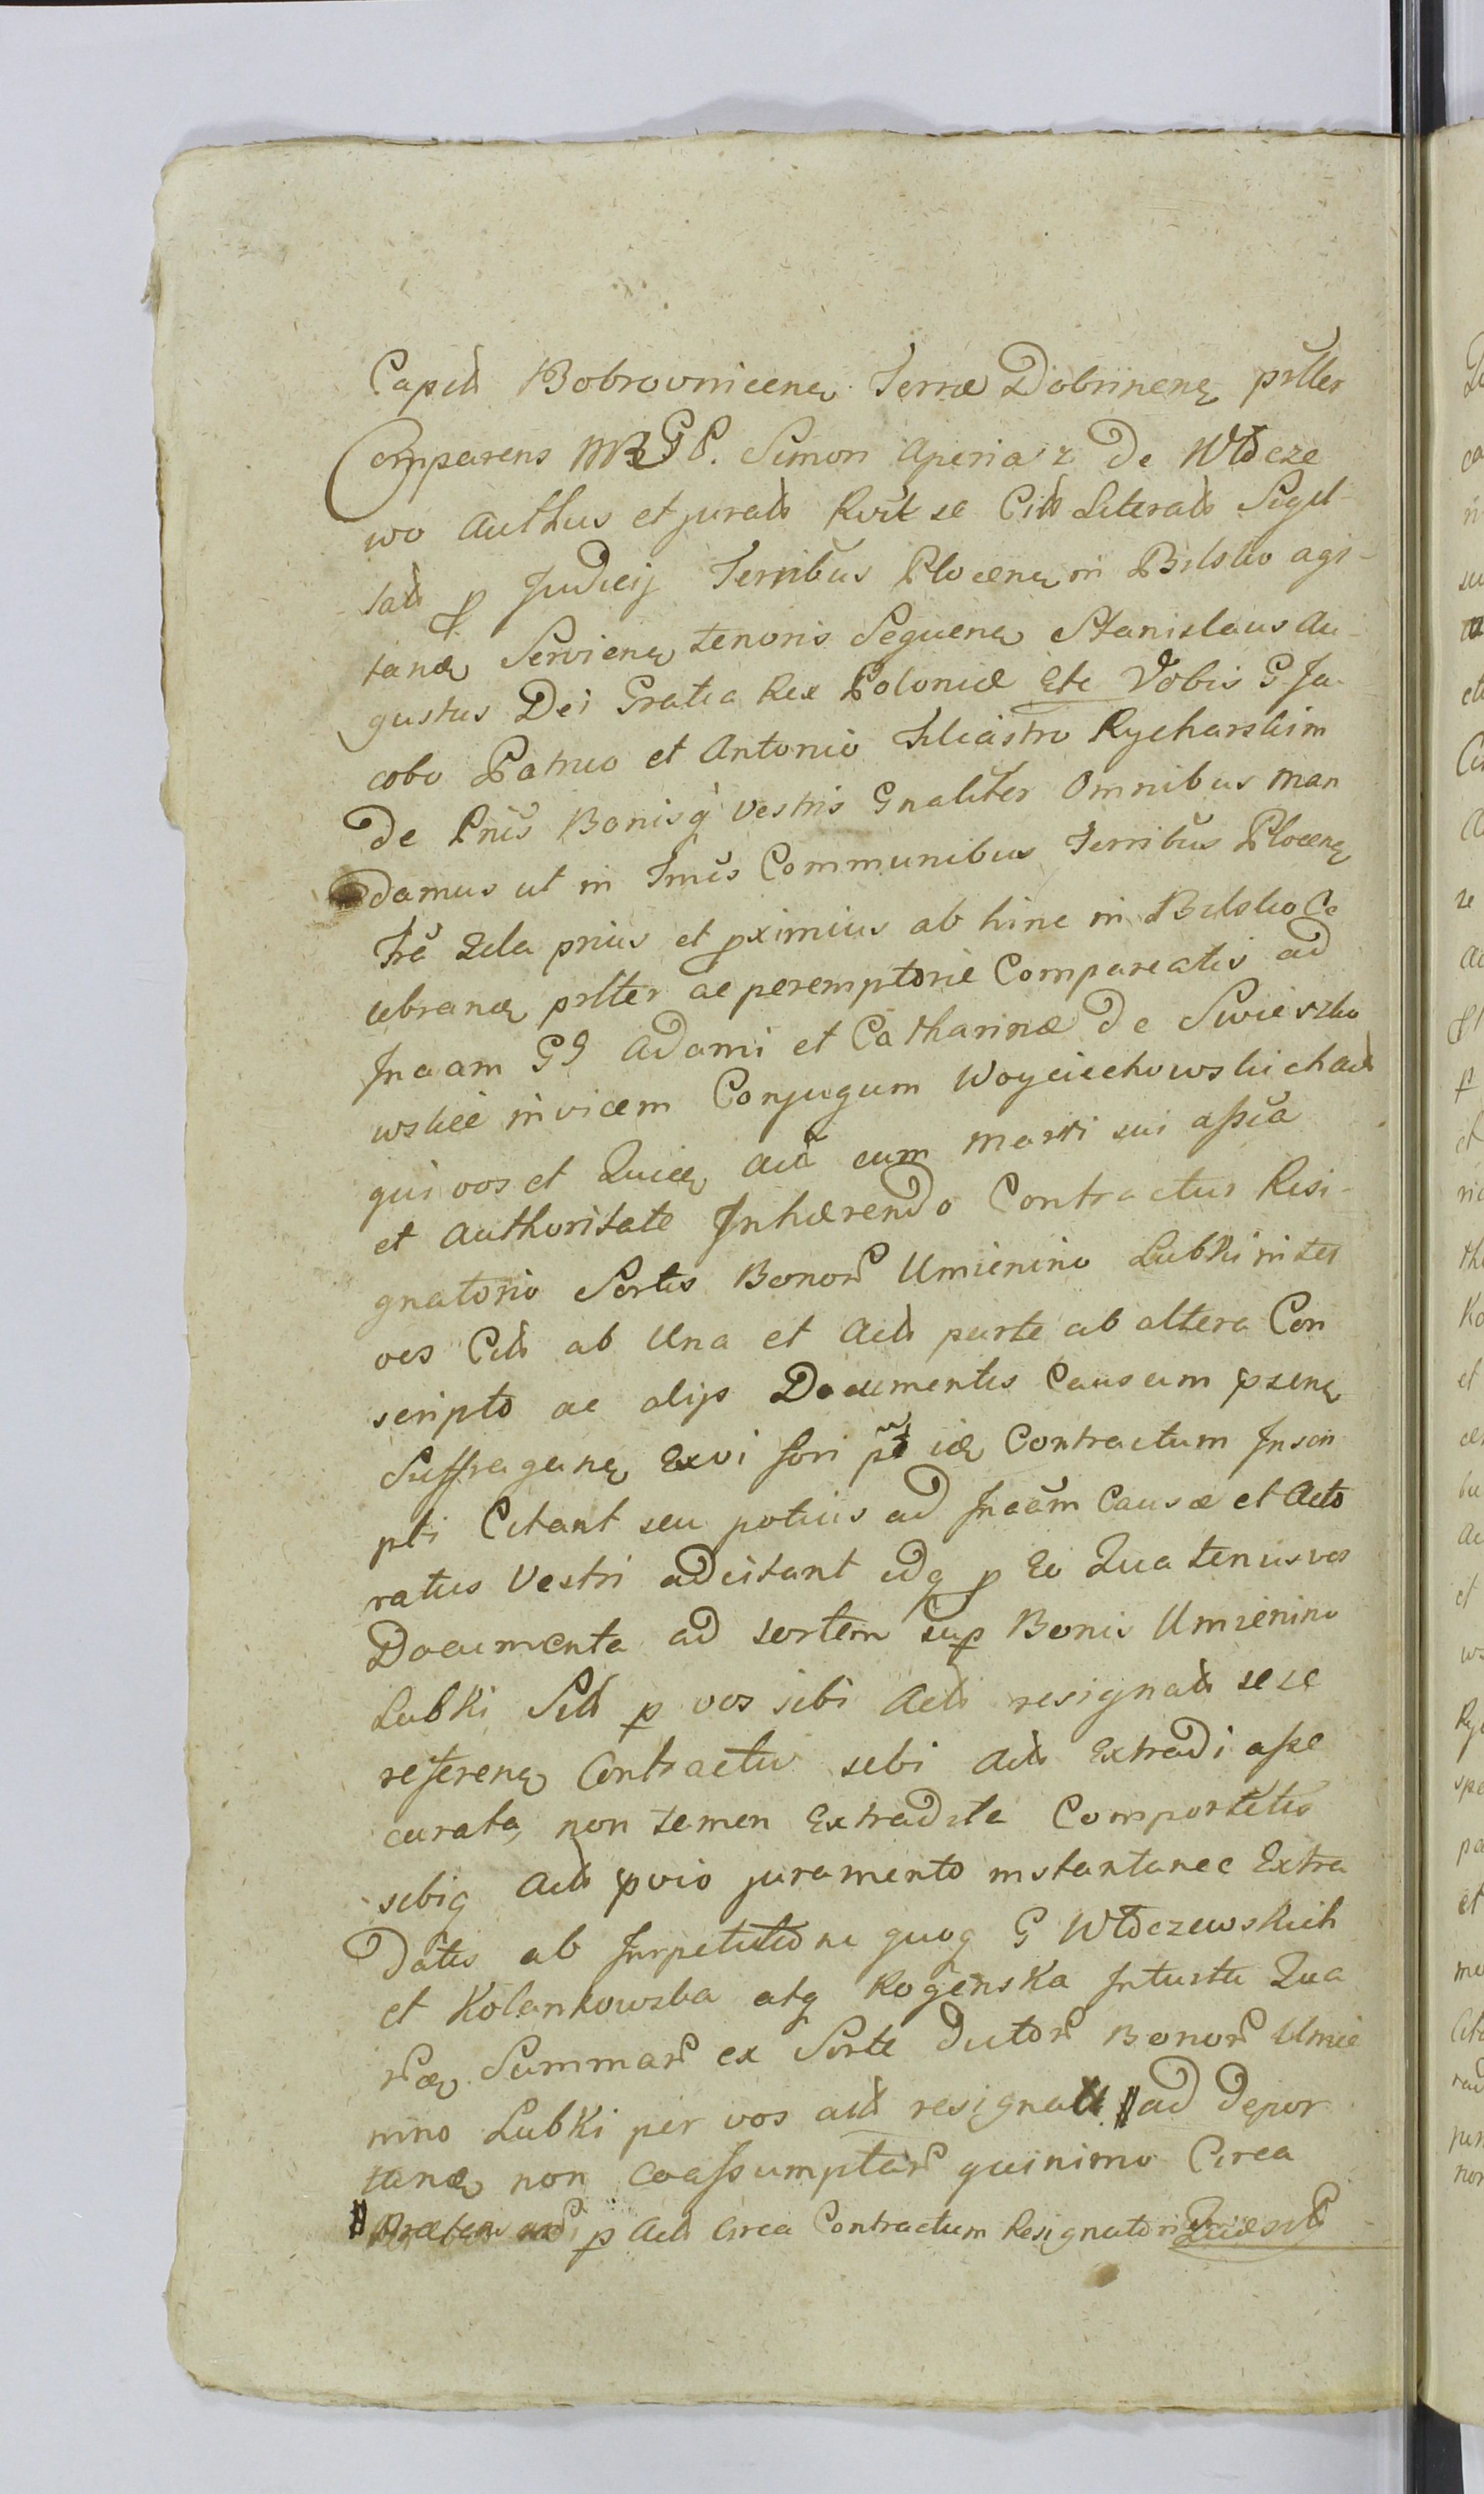 Capitl Bobrovnicenę Terræ Dobrinenę prtter
Comparens MRGP. Simon Aperiarz De Wtdcze
wo Authus et juratl Rvit se Citl Literatl Sigil-
latl p Judicij Terribus Plocenę in Bilsko agi-
tandę Servienę tenoris Sequenę Stanislaus Au-
gustus Dei Gratia Rex Poloniæ Etc Vobis G Ja-
cobo Patruo et Antonio Filiastro Rycharskim
De Pnis Bonisq vestris Gnaliter Omnibus Man
damus ut in Tmis Communibus Terribus Plocenę
Fre 2da prius et pximius ab hinc in Bilsko Ce
lebrandę prtter ac peremptorie Compareatis ad
Jnaam GG Adami et Catharinæ De Swieszko
wskie invicem Conjugum Woyciechowskich Actl
qui vos et Quidę Acta cum Marti sui assia
et Authoritate Jnhærendo Contractui Resi-
gnatorio Sortis Bonor Umienino Lubki inter
vos Citl ab Una et Actl parte ab altera Con
scripto ac alijs Documentis Causam pzenę
Suffraganę Exvi fori pt idę Contractum Jnscri
pti Citant seu potius ad Jnaam Causæ et Acto
ratus Vestri adcitant idq p Eo Quatenus vos
Documenta ad sortem sup Bonis Umienino
Lubki Sitl p vos sibi Actl resignatl sese
referenę Contractu sibi Actl Extradi asse
curata, non tamen Extradita Comportetis
sibiq Actl pvio juramento instantanee Extra
Datis ab Jmpetitione quoq G Wtdczewskich
et Kolankowska atq Rogenska Jntuitu Qua
rdę Summar ex Sorte Dictor Bonor Umie
nino Lubki per vos actl resignatl # ad Depor
tandę non coassumptar quinimo Circa
# p Actl Circa Contractum Resignatori